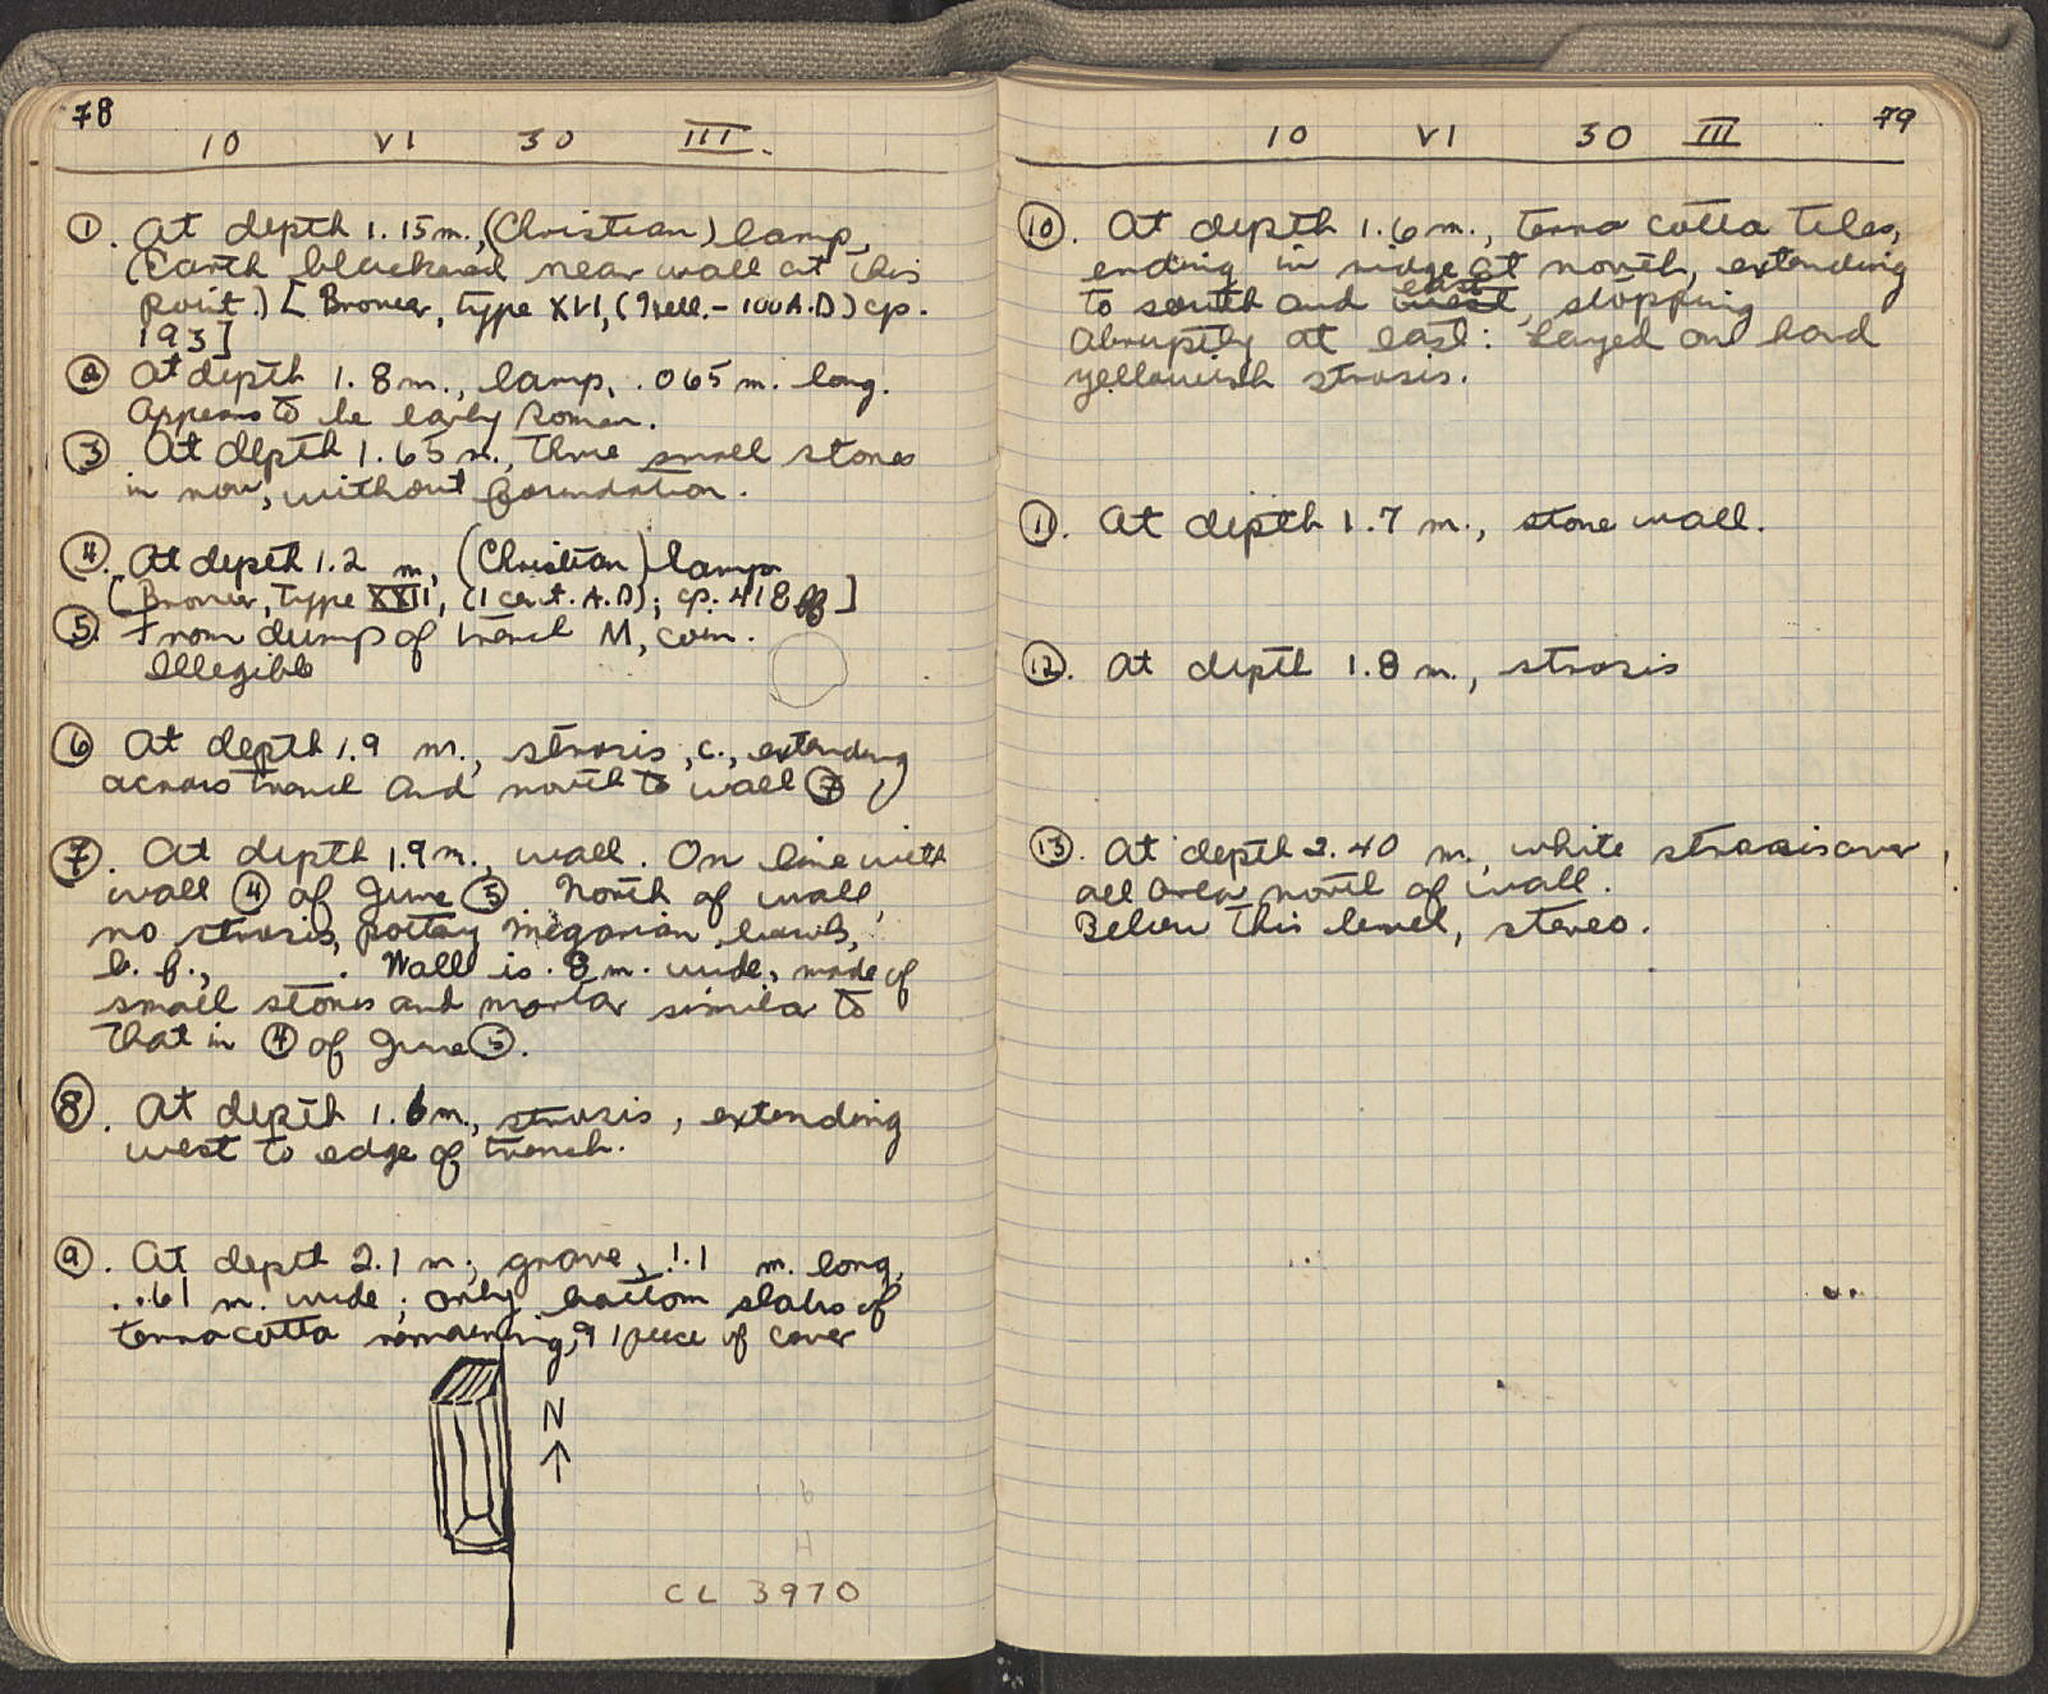 78
10 VI 30 III.
①. At depth 1.15m., (Christian) lamp,
(Earth blackened near wall at this
point.) [Broneer, type XVI, (Hell. - 100 A.D) cp.
193]
② At depth 1.8m., lamp, .065 m. long.
Appears to be early Roman.
③ At depth 1.65 m., three small stones
in row, without foundation.
④. At depth 1.2 m, (Christian) lamp
[Broneer, type XXII, (1 cent. A.D); cp. 418 ff]
⑤. From dump of trench M, coin.
Illegible
⑥ At depth 1.9 m., strosis, c., extending
across trench and north to wall ⑦
⑦. At depth 1.9m., wall. On line with
wall ④ of June ⑤. North of wall,
no strosis, pottery Megarian bowls,
b. f., . Wall is .8m. wide, made of
small stones and mortar similar to
that in ④ of June ⑤.
⑧. At depth 1.6m., strosis, extending
west to edge of trench.
⑨. At depth 2.1 m; grave, 1.1 m. long,
.61 m. wide; only bottom slabs of
terracotta remaining, 1 piece of cover
N
CL 3970
79
10 VI 30 III
⑩. At depth 1.6m., terra cotta tiles,
ending in ridge at north, extending
to south and west east, stopping
abruptly at east: Layed on hard
yellowish strosis.
⑪. At depth 1.7 m., stone wall.
⑫. At depth 1.8 m., strosis
⑬. At depth 2.40 m., white strosis over
all area north of wall.
Below this level, stereo.